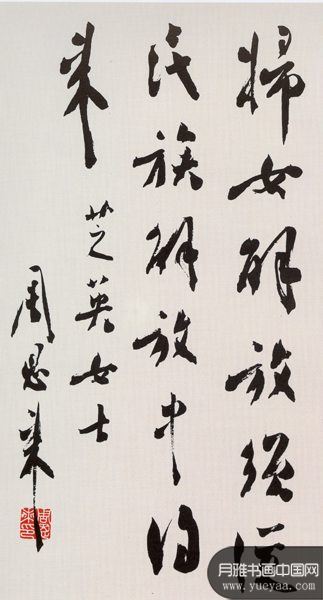 婦女解放須從
民族解放中得
來
芝英女士
周恩來
周恩來印
月雅书画中国网
www.yueyaa.com